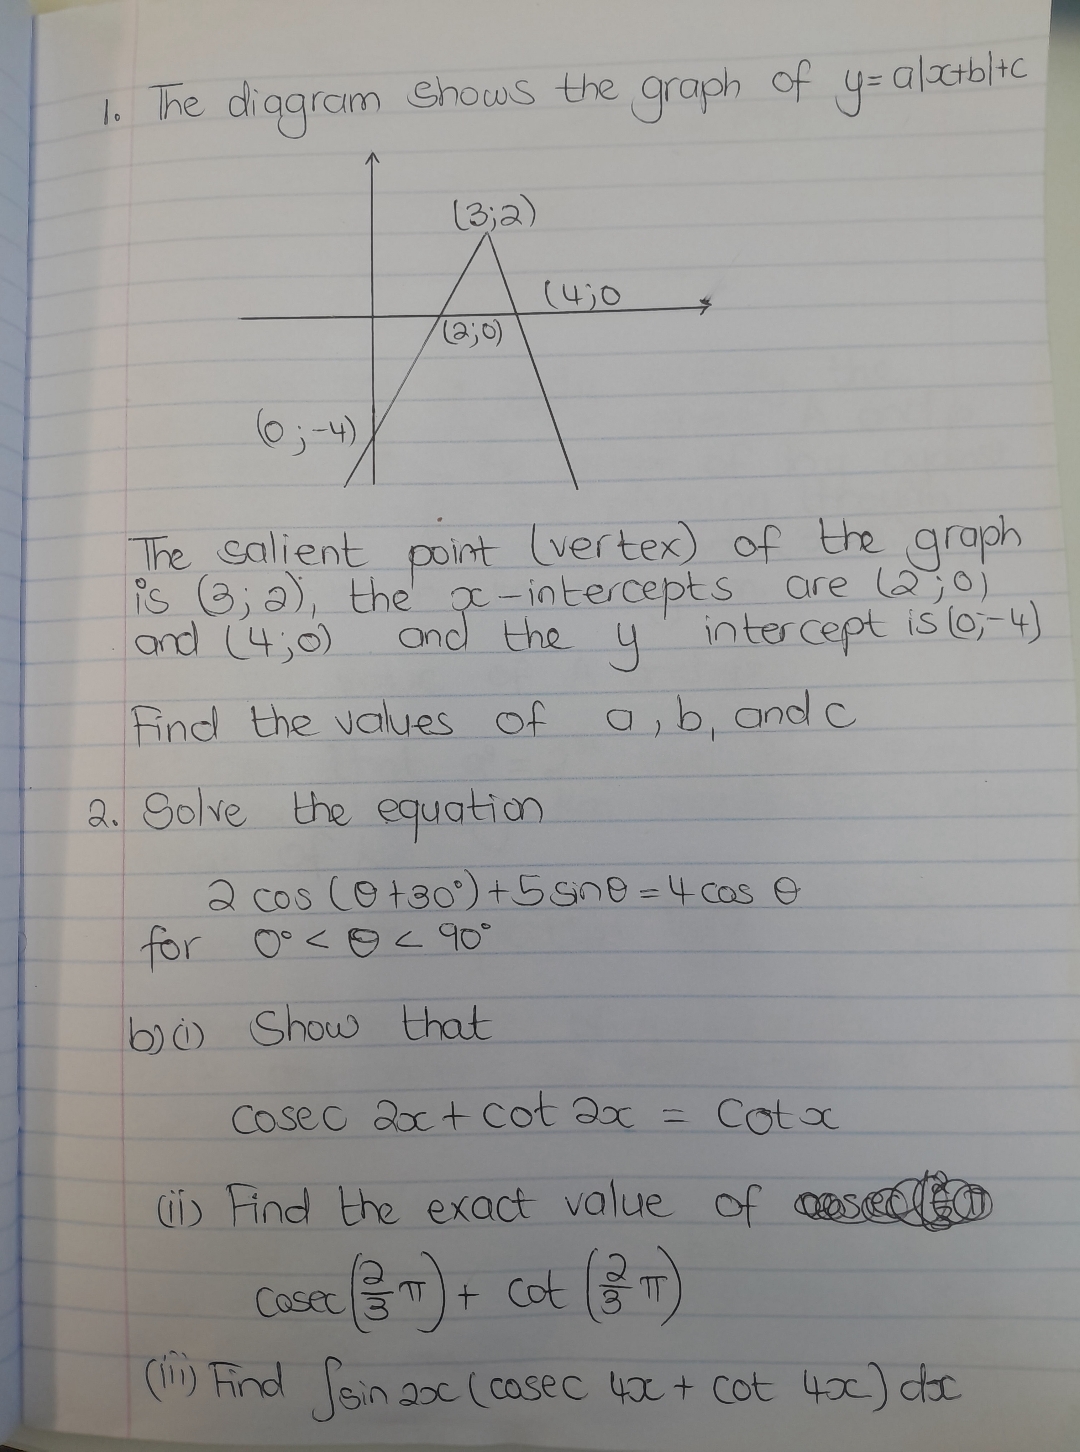 1. The diagram shows the graph of y= a|x+b|+c
(3;2)
(4;0
(2;0)
(0;-4)
The salient point (vertex) of the graph
is (3;2), the x-intercepts are (2;0)
and (4;0) and the y intercept is (0;-4)
Find the values of a, b, and c
2. Solve the equation
2 cos (θ+30°)+5 sinθ = 4 cos θ
for 0° < θ < 90°
b)(i) Show that
cosec 2x + cot 2x = cot x
(ii) Find the exact value of
cosec(2/3 π) + cot (2/3 π)
(iii) Find ∫sin 2x (cosec 4x + cot 4x) dx